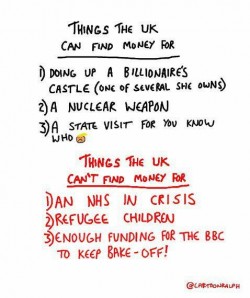 THINGS THE UK
CAN FIND MONEY FOR
1) DOING UP A BILLIONAIRE'S
CASTLE (ONE OF SEVERAL SHE OWNS)
2) A NUCLEAR WEAPON
3) A STATE VISIT FOR YOU KNOW
WHO
THINGS THE UK
CAN'T FIND MONEY FOR
1) AN NHS IN CRISIS
2) REFUGEE CHILDREN
3) ENOUGH FUNDING FOR THE BBC
TO KEEP BAKE-OFF!
@CARTOONRALPH